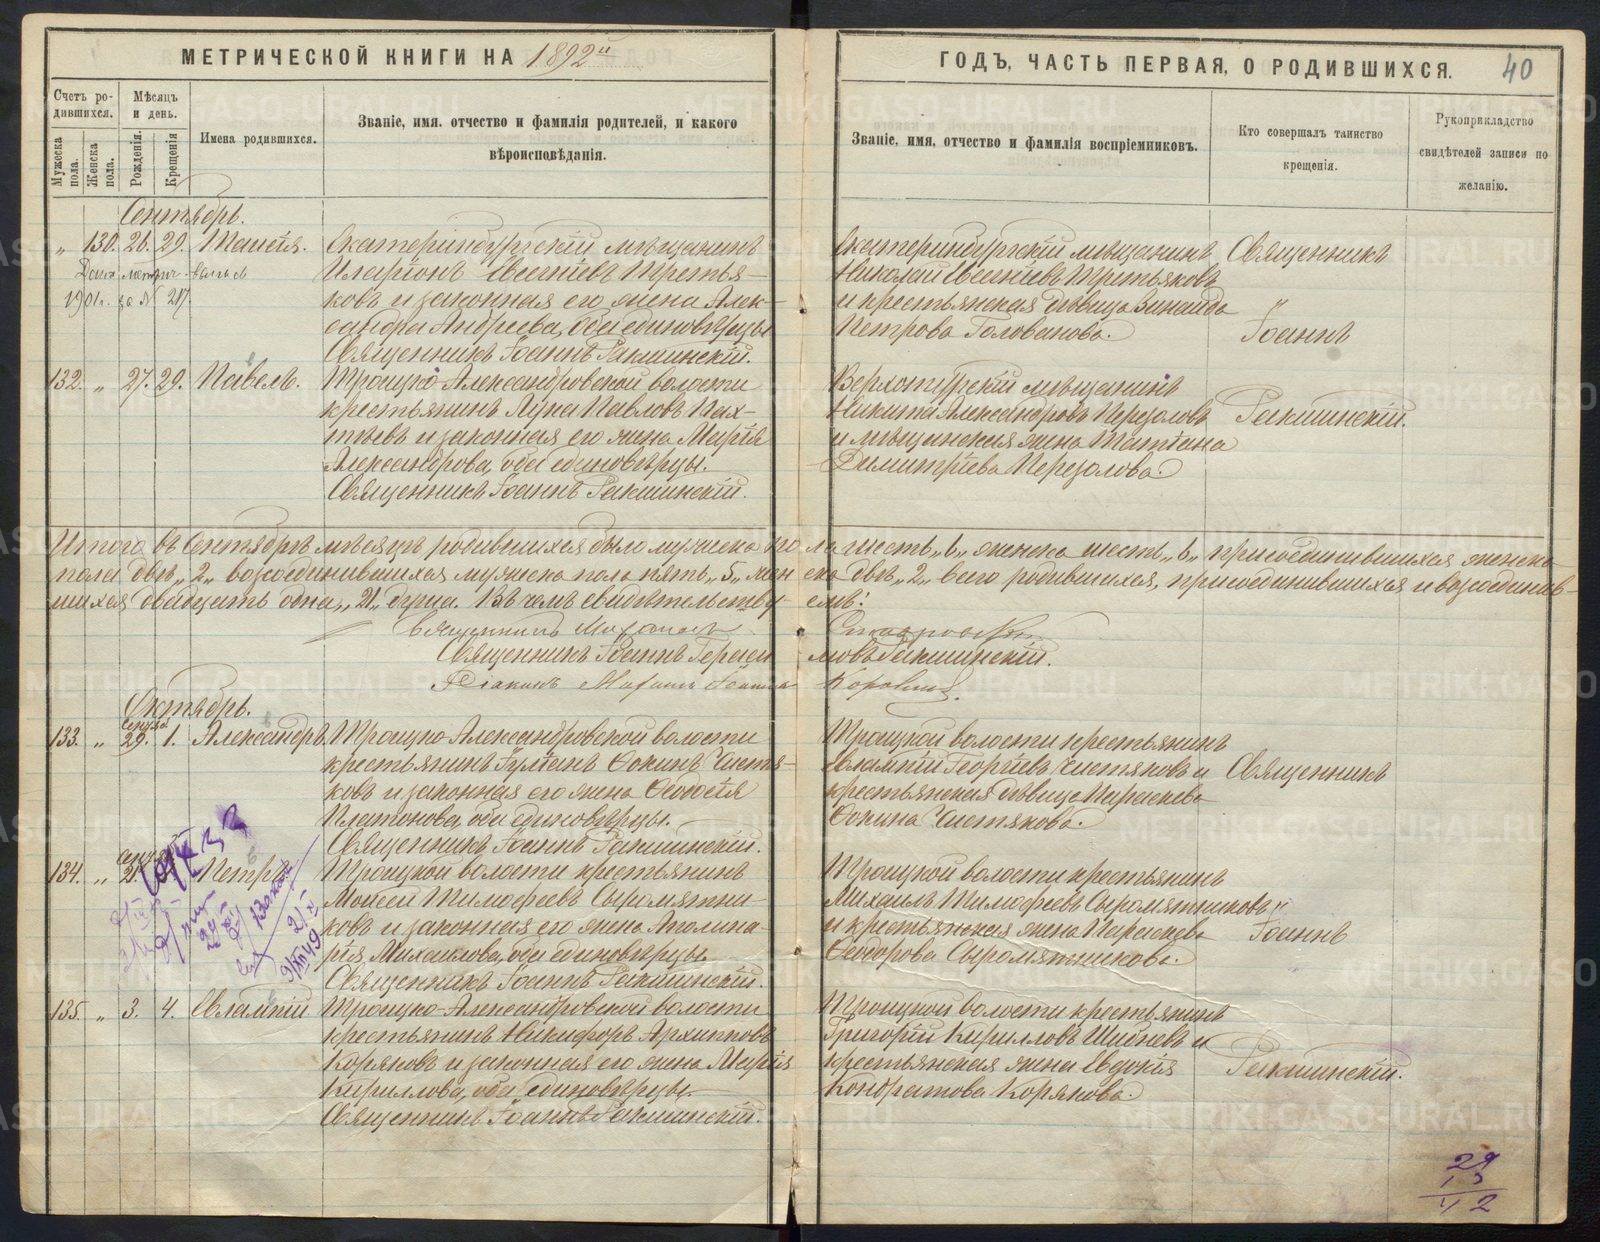 МЕТРИЧЕСКОЙ КНИГИ НА 1892й
ГОДЪ, ЧАСТЬ ПЕРВАЯ, О РОДИВШИХСЯ.
40
Счетъ родившихся.
Мужеска пола.
Женска пола.
Мѣсяцъ и день.
Рожденія.
Крещенія
Имена родившихся.
Званіе, имя. отчество и фамилія родителей, и какого
вѣроисповѣданія.
Званіе, имя, отчество и фамилія воспріемниковъ.
Кто совершалъ таинство
крещенія.
Рукоприкладство
свидѣтелей записи по
желанію.
Сентябрь.
„ 130. 26. 29. Таисія.
1901г. за № 217.
Екатеринбургскій мѣщанинъ
Иларіонъ Евсеніевъ Третья-
ковъ и законная его жена Алек-
сандра Андреева, оба единовѣрцы
Священникъ Іоаннъ Ракшинскій.
Екатеринбургскій мѣщанинъ
Николай Евсеніевъ Третьяковъ
и крестьянская дѣвица Зинаида
Петрова Голованова.
Священникъ
Іоаннъ
132. „ 27. 29. Павелъ.
Троицко-Александровской волости
крестьянинъ Лука Павловъ Пах-
тѣевъ и законная его жена Марія
Александрова, оба единовѣрцы.
Священникъ Іоаннъ Ракшинскій.
Верхотурскій мѣщанинъ
Никита Александровъ Перезоловъ
и мѣщанская жена Татіана
Димитріева Перезолова.
Ракшинскій.
Итого въ Сентябрѣ мѣсяцѣ родившихся было мужеска пола шесть „6„ женска шесть „6„ присоединившихся женска
пола двѣ „2„ возсоединившихся мужска пола пять „5„ женска двѣ „2„ всего родившихся, присоединившихся и возсоединив-
шихся двадцать одна „21„ душа. Въ чемъ свидѣтельствуемъ:
Священникъ Іоаннъ Герасимовъ Ракшинскій.
Октябрь.
133. „ Сентяб. 29. 1. Александръ.
Троицко-Александровской волости
крестьянинъ Іуліанъ Ѳокинъ Чистя-
ковъ и законная его жена Ѳеодосія
Платонова, оба единовѣрцы.
Священникъ Іоаннъ Ракшинскій.
Троицкой волости крестьянинъ
Евлампій Георгіевъ Чистяковъ и
крестьянская дѣвица Параскева
Ѳокина Чистякова.
Священникъ
134. „ Петръ.
Троицкой волости крестьянинъ
Моисей Тимофеевъ Сыромятни-
ковъ и законная его жена Аполина-
рія Михаилова, оба единовѣрцы.
Священникъ Іоаннъ Ракшинскій.
Троицкой волости крестьянинъ
Михаилъ Тимофеевъ Сыромятниковъ
и крестьянская жена Параскева
Ѳеодорова Сыромятникова.
Іоаннъ
135. „ 3. 4. Евлампій
Троицко-Александровской волости
крестьянинъ Никифоръ Архиповъ
Коряковъ и законная его жена Марія
Кириллова, оба единовѣрцы.
Священникъ Іоаннъ Ракшинскій.
Троицкой волости крестьянинъ
Григорій Кирилловъ Шибневъ и
крестьянская жена Евдокія
Кондратова Корякова.
Ракшинскій.
29
13
42